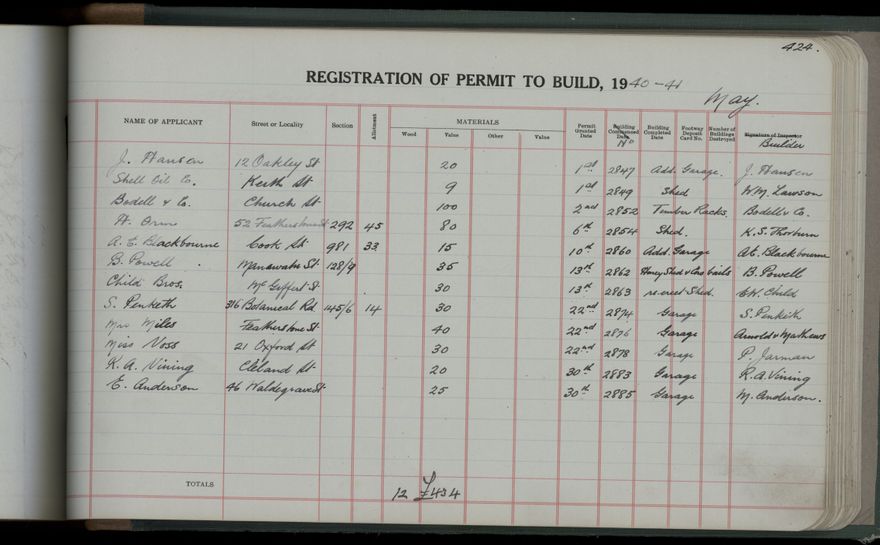 424.
REGISTRATION OF PERMIT TO BUILD, 1940-41
May.
NAME OF APPLICANT Street or Locality Section Allotment MATERIALS Permit Granted Date Building Commenced Date No Building Completed Date Footway Deposit Card No. Number of Buildings Destroyed Signature of Inspector Builder
Wood Value Other Value
J. Hansen 12 Oakley St 20 1st 2847 Add. Garage. J. Hansen
Shell Oil Co. Keith St 9 1st 2849 Shed W.M. Lawson
Bodell & Co. Church St 100 2nd 2852 Timber Racks. Bodell & Co.
H. Orm 52 Featherstone St 292 45 80 6th 2854 Shed. K.S. Thorburn
A. E. Blackbourne Cook St 981 33 15 10th 2860 Add. Garage A.E. Blackbourne
B. Powell Manawatu St 128/9 35 13th 2862 Honey Shed & Cow bails B. Powell
Child Bros. McGiffert St. 30 13th 2863 re-erect Shed. E.W. Child
S. Penketh 316 Botanical Rd 145/6 14 30 22nd 2874 Garage S. Penketh
Mrs Miles Featherstone St 40 22nd 2876 Garage Arnold & Mathews
Miss Voss 21 Oxford St 30 22nd 2878 Garage P. Jarman
R. A. Vining Cleland St 20 30th 2883 Garage R.A. Vining
E. Anderson 46 Waldegrave St 25 30th 2885 Garage M. Anderson.
TOTALS 12 £434